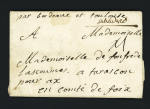 par Bordeaux et Toulouse
A Mademoiselle
Mademoiselle de
a tarascon
pour ax
en comté de foix